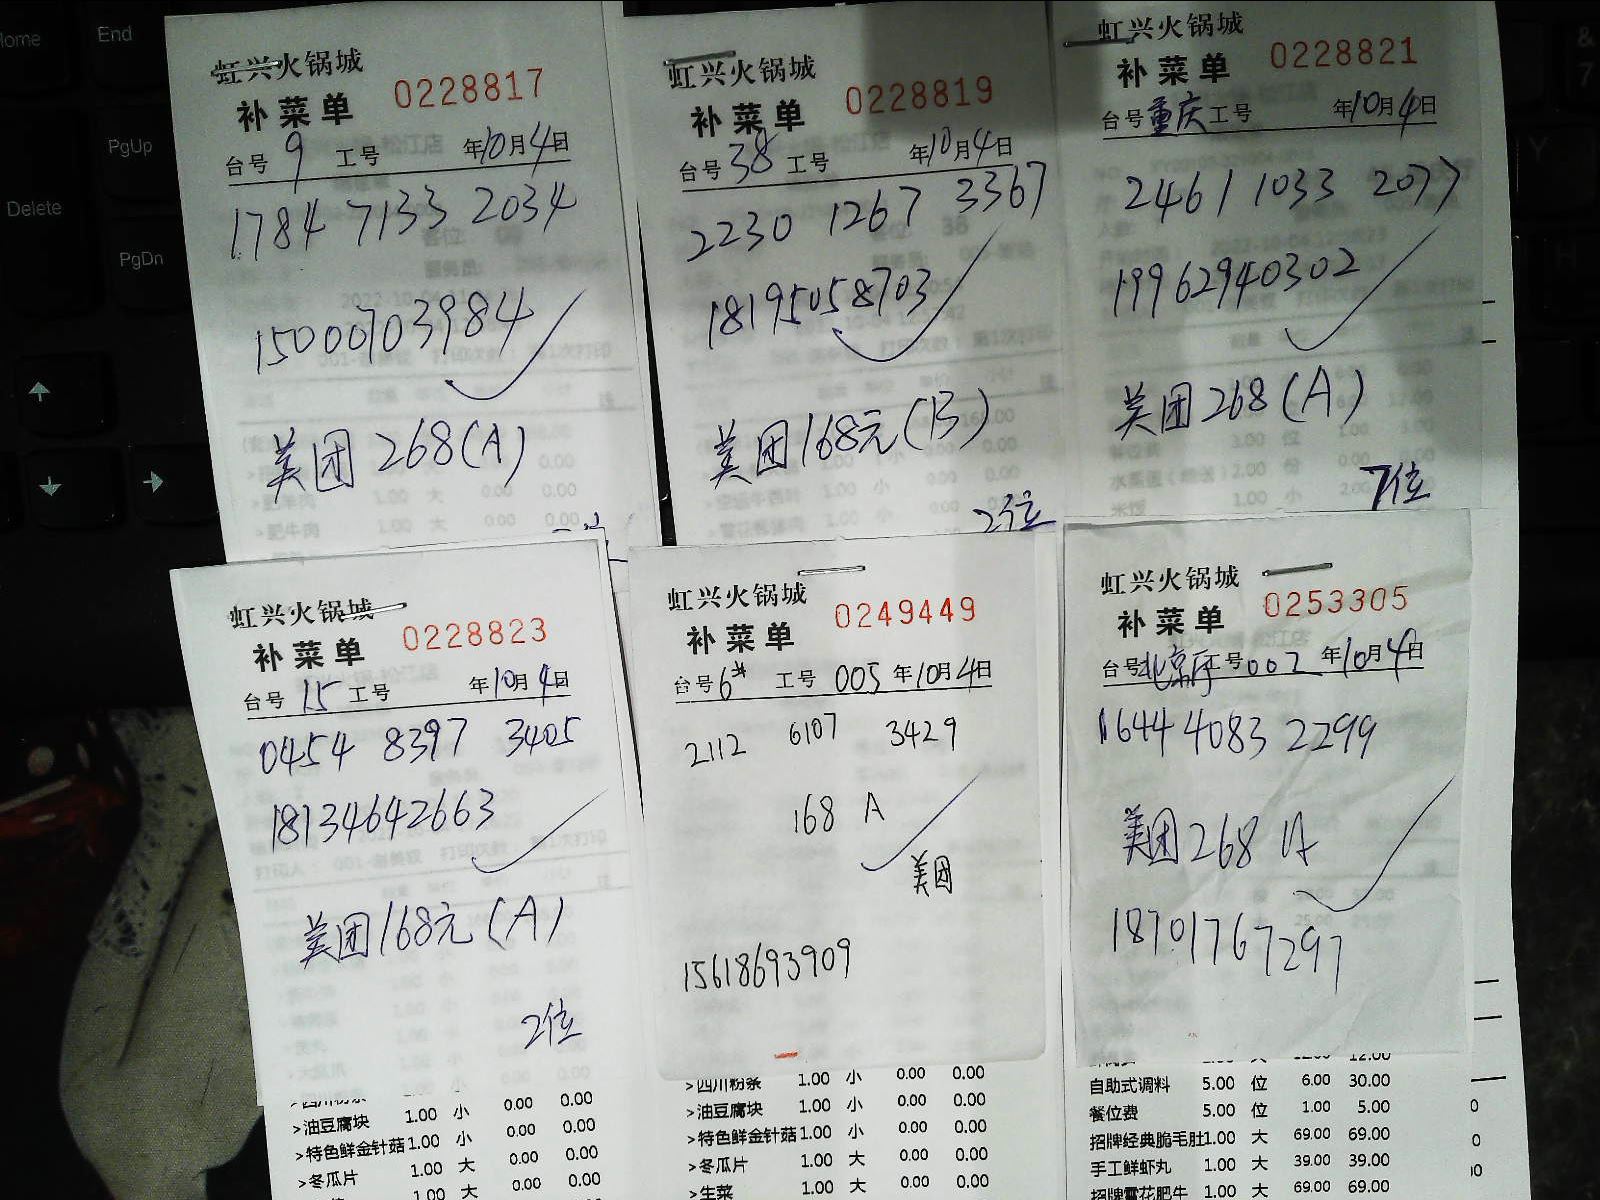 Home
End
PgUp
Delete
PgDn
&
7
Y
H
虹兴火锅城
补菜单 0228817
台号 9 工号 年10月4日
1784 7133 2034
15000703984
美团 268(A)
虹兴火锅城
补菜单 0228819
台号 38 工号 年10月4日
2230 1267 3367
18195058703
美团168元(B)
2位
虹兴火锅城
补菜单 0228821
台号 重庆 工号 年10月4日
2461 1033 2077
19962940302
美团268(A)
7位
虹兴火锅城
补菜单 0228823
台号 15 工号 年10月4日
0454 8397 3405
18134642663
美团168元(A)
2位
>油豆腐块 1.00 小 0.00 0.00
>特色鲜金针菇 1.00 小 0.00 0.00
>冬瓜片 1.00 大 0.00 0.00
1.00 大 0.00 0.00
虹兴火锅城
补菜单 0249449
台号 6# 工号 005 年10月4日
2112 6107 3429
168 A
美团
15618693909
>四川粉条 1.00 小 0.00 0.00
>油豆腐块 1.00 小 0.00 0.00
>特色鲜金针菇 1.00 小 0.00 0.00
>冬瓜片 1.00 大 0.00 0.00
>生菜 1.00 大 0.00 0.00
虹兴火锅城
补菜单 0253305
台号 北京厅 工号 002 年10月4日
1644 4083 2299
美团268 A
18701767297
自助式调料 5.00 位 6.00 30.00
餐位费 5.00 位 1.00 5.00
招牌经典脆毛肚 1.00 大 69.00 69.00
手工鲜虾丸 1.00 大 39.00 39.00
招牌雪花肥牛 1.00 大 69.00 69.00